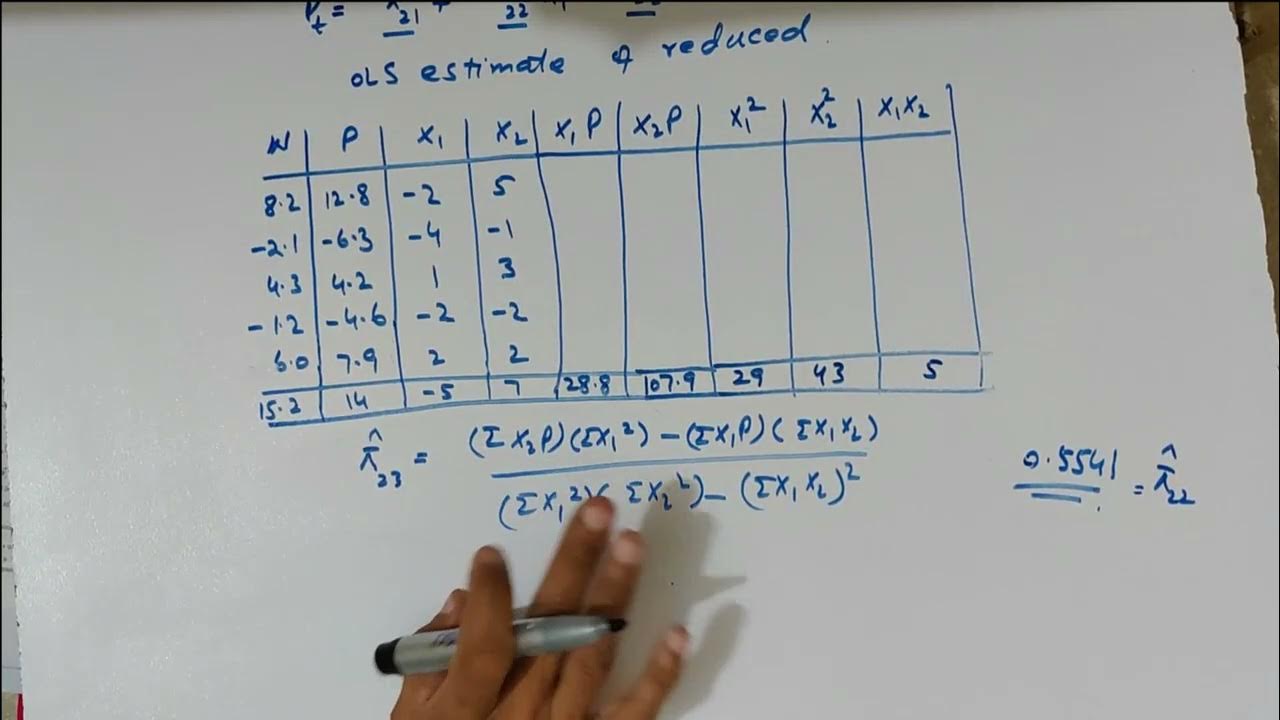 P_t = π̂_21 + _22
OLS estimate of reduced
W | P | X_1 | X_2 | X_1 P | X_2 P | X_1^2 | X_2^2 | X_1 X_2
8.2 | 12.8 | -2 | 5
-2.1 | -6.3 | -4 | -1
4.3 | 4.2 | 1 | 3
-1.2 | -4.6 | -2 | -2
6.0 | 7.9 | 2 | 2
15.2 | 14 | -5 | 7 | 28.8 | 107.9 | 29 | 43 | 5
π̂_23 = (ΣX_2P)(ΣX_1^2) - (ΣX_1P)(ΣX_1X_2)
(ΣX_1^2)(ΣX_2^2) - (ΣX_1X_2)^2
0.5541 = π̂_22